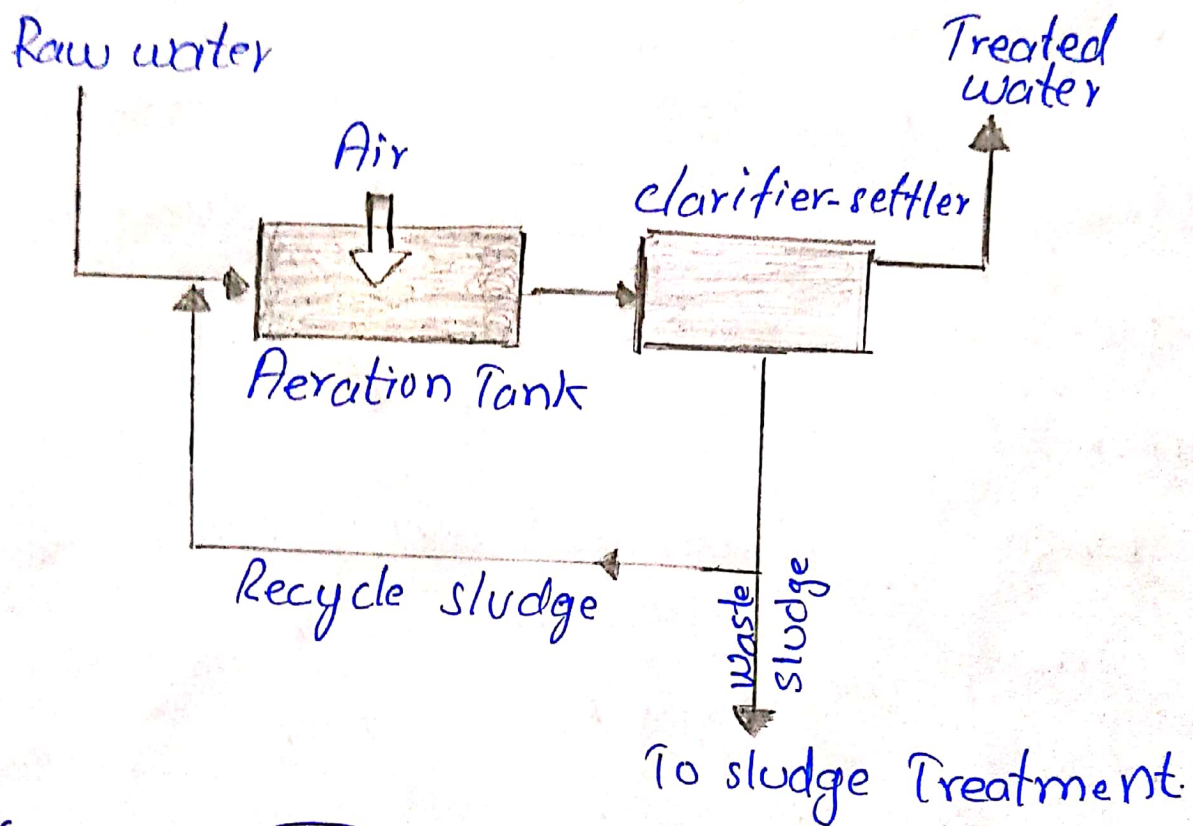 Raw water
Treated
water
Air
clarifier-settler
Aeration Tank
Recycle sludge
Waste
sludge
To sludge Treatment.